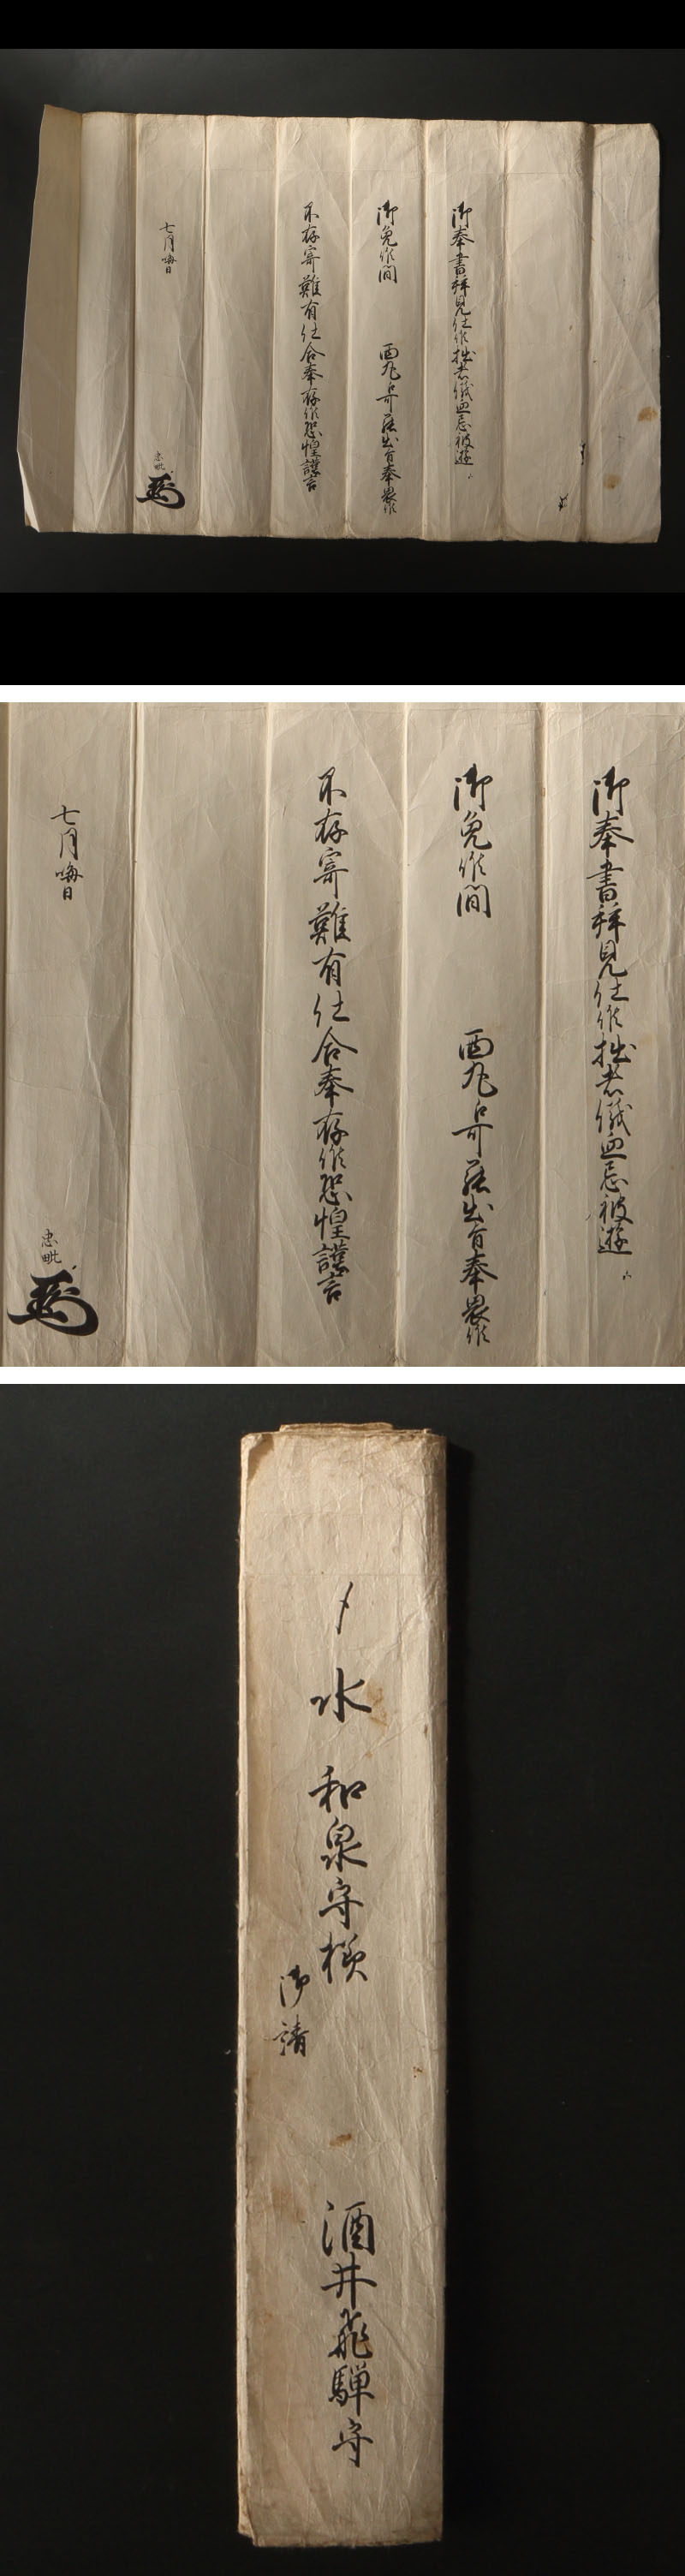 御奉書拝見仕候拙者儀血忌被遊
御免候間
西丸江可罷出旨奉畏候
不存寄難有仕合奉存候恐惶謹言
七月晦日
忠毗
御奉書拝見仕候拙者儀血忌被遊
御免候間
西丸江可罷出旨奉畏候
不存寄難有仕合奉存候恐惶謹言
七月晦日
忠毗
水 和泉守様
御請
酒井飛騨守